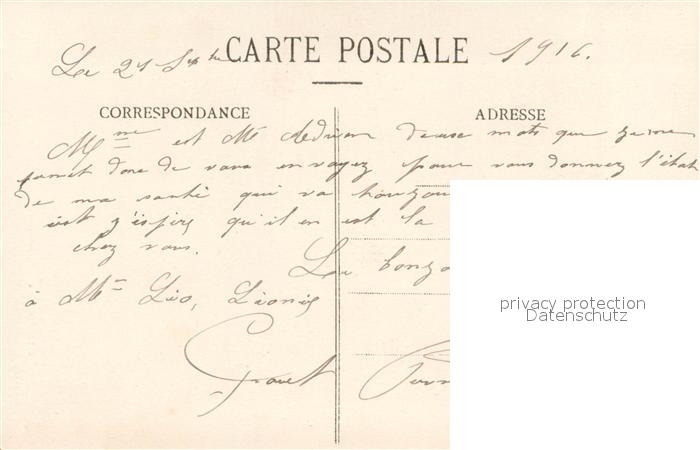 Le 21 Sptbre CARTE POSTALE 1916.
CORRESPONDANCE ADRESSE
Mme et Mr Adrien deuse mots que je me
pamet dore de vous envoyez pour vous donnez l'état
de ma santé qui va touzou
est j'espire qu'il en est la
chez vous.
Le bonzo
à Mlle Léo, Léonie
privacy protection
Datenschutz